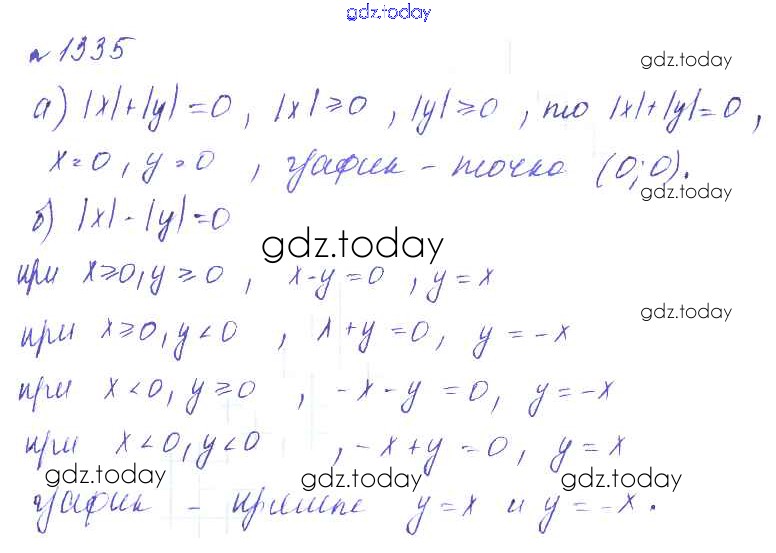 gdz.today
№ 1335
gdz.today
а) |x|+|y|=0, |x|≥0, |y|≥0, то |x|+|y|=0,
x=0, y=0, график - точка (0;0).
gdz.today
б) |x|-|y|=0
gdz.today
при x≥0, y≥0, x-y=0, y=x
gdz.today
при x≥0, y<0, x+y=0, y=-x
при x<0, y≥0, -x-y=0, y=-x
при x<0, y<0, -x+y=0, y=x
gdz.today gdz.today gdz.today
график - прямые y=x и y=-x.